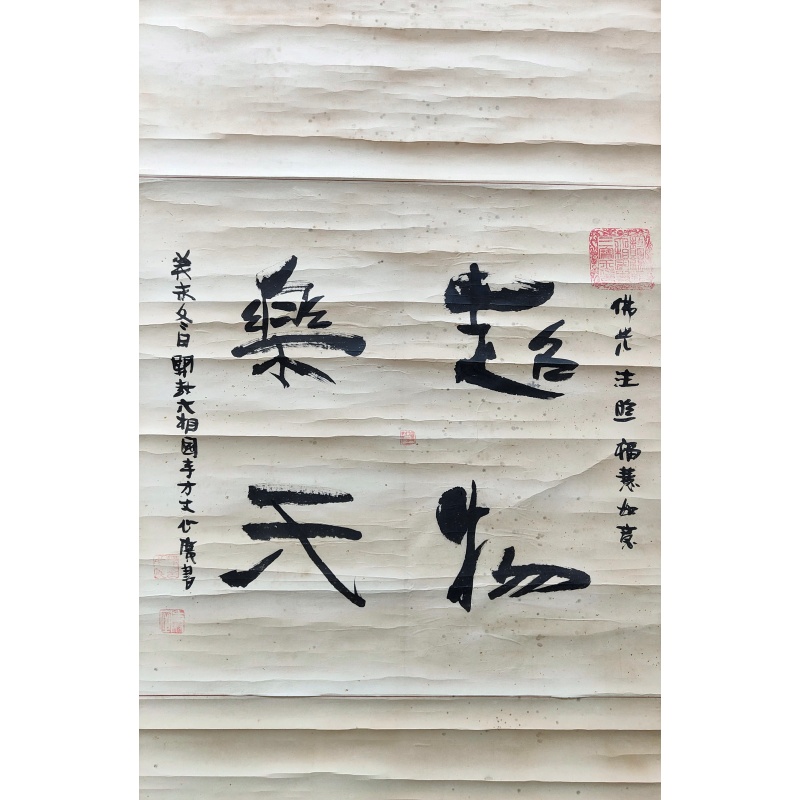 佛光注照 福慧如意
超物
樂天
癸未冬日開封大相國寺方丈心廣書